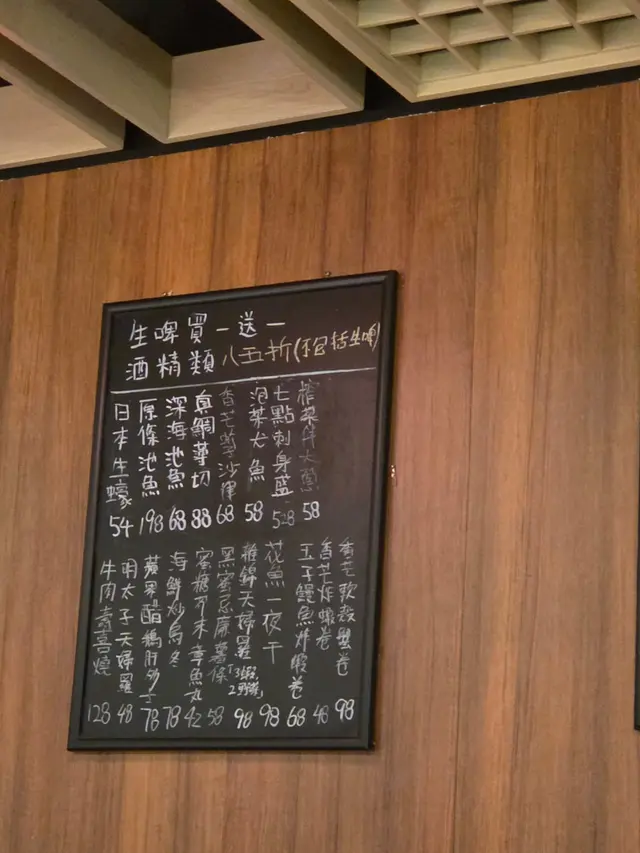 生啤買一送一
酒精類八五折(不包括生啤)
日本生蠔 54
原條池魚 198
深海池魚 68
真鯛薄切 88
香芒 沙律 68
泡菜 魚 58
七點刺身盛 528
榨菜 58
牛肉壽喜燒 128
明太子天婦羅 48
蘋果醋鵝肝多士 78
海鮮炒烏冬 78
蜜糖芥末章魚丸 42
黑蜜忌廉薯條 58
雜錦天婦羅「3蝦, 2野菜」 98
花魚一夜干 98
玉子鰻魚炸蝦卷 68
香芒炸蝦卷 48
香芒軟殼蟹卷 98